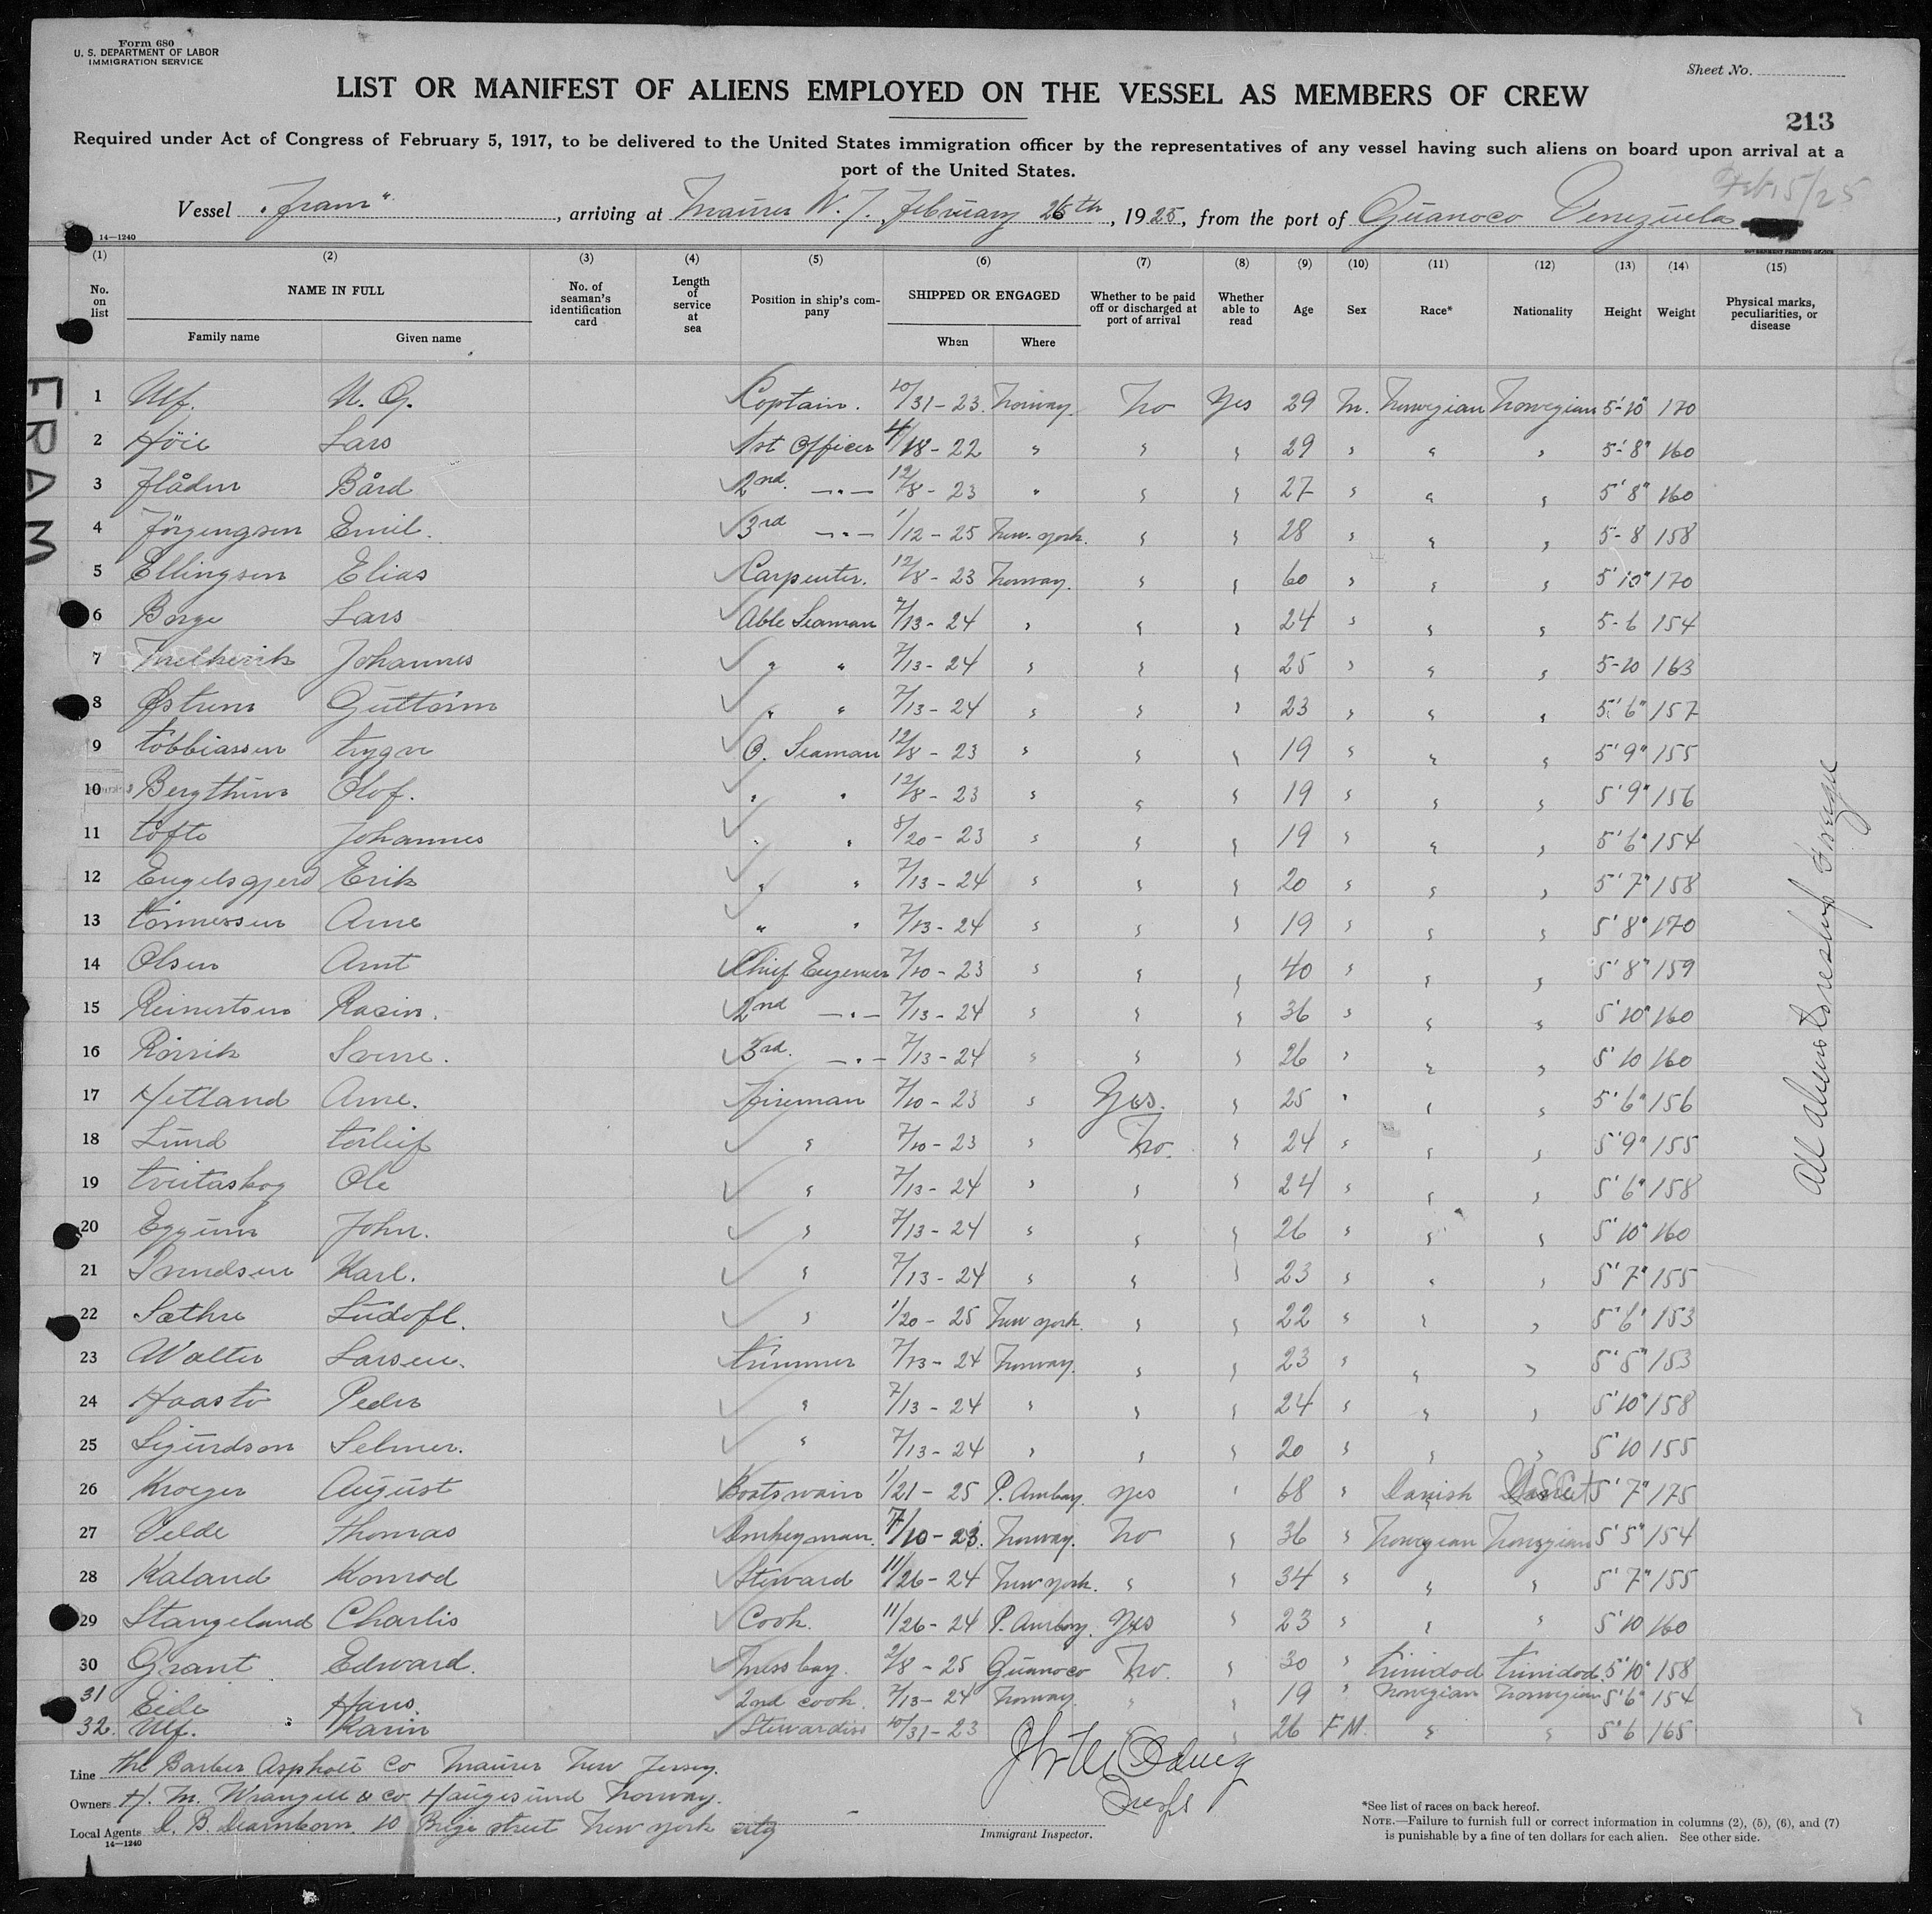 Form 680
U. S. DEPARTMENT OF LABOR
IMMIGRATION SERVICE
Sheet No.
LIST OR MANIFEST OF ALIENS EMPLOYED ON THE VESSEL AS MEMBERS OF CREW
213
Required under Act of Congress of February 5, 1917, to be delivered to the United States immigration officer by the representatives of any vessel having such aliens on board upon arrival at a
port of the United States.
Feb 15/25
Vessel "Fram", arriving at Maurer N.J. February 26th, 1925, from the port of Guanoco Venezuela
14—1240
(1) (2) (3) (4) (5) (6) (7) (8) (9) (10) (11) (12) (13) (14) (15)
No. on list NAME IN FULL Family name Given name No. of seaman's identification card Length of service at sea Position in ship's company SHIPPED OR ENGAGED When Where Whether to be paid off or discharged at port of arrival Whether able to read Age Sex Race* Nationality Height Weight Physical marks, peculiarities, or disease
FRAM
1 Ulf. U. G. Captain. 10/31-23 Norway. No Yes 29 M. Norwegian Norwegian 5'-10" 170
2 Höie Lars 1st Officer 4/18-22 " " " 29 " " " 5-8" 160
3 Flåden Bård 2nd. —"— 12/8-23 " " " 27 " " " 5'8" 160
4 Jörgengsen Emil. 3rd —"— 1/12-25 New-York. " " 28 " " " 5-8 158
5 Ellingsen Elias Carpenter. 12/8-23 Norway. " " 60 " " " 5'10" 170
6 Borge Lars Able Seaman 7/13-24 " " " 24 " " " 5-6 154
7 Johannes " " 7/13-24 " " " 25 " " " 5-10 163
8 Østrem Guttorm " " 7/13-24 " " " 23 " " " 5'6" 157
9 Tobbiassen Trygve O. Seaman 12/8-23 " " " 19 " " " 5'9" 155
10 Olof. " " 12/8-23 " " " 19 " " " 5'9" 156
11 Tofte Johannes " " 8/20-23 " " " 19 " " " 5'6" 154
12 Engelsgjerd Erik " " 7/13-24 " " " 20 " " " 5'7" 158
13 Tönnessen Arne " " 7/13-24 " " " 19 " " " 5'8" 170
14 Olsen Arnt Chief Engeneer 7/10-23 " " " 40 " " " 5'8" 159
15 Reinertsen 2nd —"— 7/13-24 " " " 36 " " " 5'10" 160
16 Rörvik Sverre. 3rd. —"— 7/13-24 " " " 26 " " " 5'10 160
17 Hetland Arne. Fireman 7/10-23 " Yes. " 25 " " " 5'6" 156
18 Lund Torleif " 7/10-23 " No. " 24 " " " 5'9" 155
19 Tveitaskog Ole " 7/13-24 " " " 24 " " " 5'6" 158
20 Eggum John. " 7/13-24 " " " 26 " " " 5'10" 160
21 Svendsen Karl. " 7/13-24 " " " 23 " " " 5'7" 155
22 Sæthre Ludofl. " 1/20-25 New York. " " 22 " " " 5'6" 153
23 Walter Larsen. Trimmer 7/13-24 Norway. " " 23 " " " 5'5" 153
24 Haasto Peder " 7/13-24 " " " 24 " " " 5'10" 158
25 Sigurdson Selmer. " 7/13-24 " " " 20 " " " 5'10 155
26 Kroeger August Boatswain 1/21-25 P. Amboy. Yes " 68 " Danish 5'7" 175
27 Velde Thomas Donkeyman. 7/10-23. Norway. No " 36 " Norwegian Norwegian 5'5" 154
28 Kaland Konrad Steward 11/26-24 New York. " " 34 " " " 5'7" 155
29 Stangeland Charlis Cook. 11/26-24 P. Amboy. Yes " 23 " " " 5'10 160
30 Grant Edward. Messboy. 2/8-25 Guanoco No. " 30 " Trinidad Trinidad. 5'10" 158
31 Eide Hans. 2nd cook. 7/13-24 Norway. " " 19 " Norwegian Norwegian 5'6" 154
32. Ulf. Karin Stewardiss 10/31-23 " 26 F M. " " 5'6 165
All aliens to reship foreign
Line The Barber Asphalt Co Maurer New Jersey.
Owners H. M. Wrangell & Co. Haugesund Norway.
Local Agents D. B. Dearnborn 10 Brige street New York city
14—1240
Immigrant Inspector.
*See list of races on back hereof.
NOTE.—Failure to furnish full or correct information in columns (2), (5), (6), and (7)
is punishable by a fine of ten dollars for each alien. See other side.